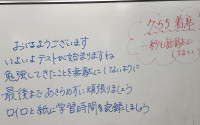 おはようございます
いよいよテストが始まりますね
勉強してきたことを無駄にしないように
最後まであきらめずに頑張りましょう
ロイロと紙に学習時間を記録しましょう